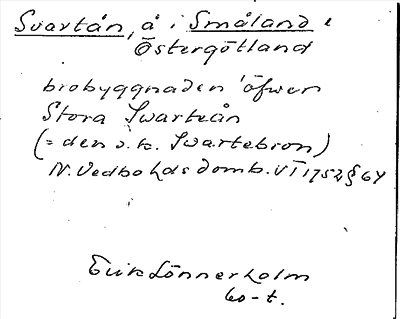 Svartån, å i Småland &
Östergötland
brobyggnaden öfwer
Stora Swarteån
(= den s.k. Swartebron)
N. Vedbo hds domb. VT 1752 § 64
Erik Lönnerholm
60-t.